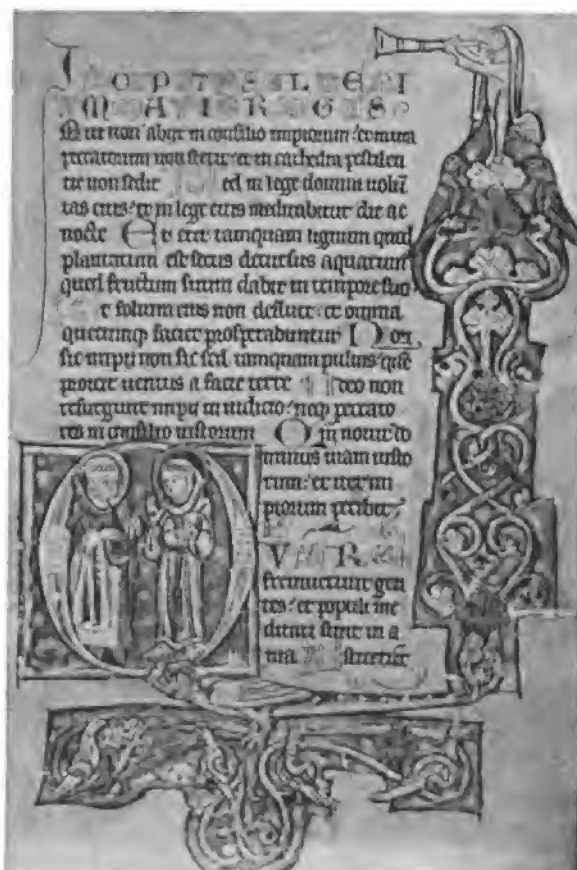 qui non abijt in consilio impiorum: et in uia
peccatorum non stetit: et in cathedra pestilen
tie non sedit Sed in lege domini uolū
tas eius: et in lege eius meditabitur die ac
nocte Et erit tamquam lignum quod
plantatum est secus decursus aquarum
quod fructum suum dabit in tempore suo
Et folium eius non defluet: et omnia
quecumq; faciet prosperabuntur Non
sic impij non sic sed tamquam puluis quē
proicit uentus a facie terre Ideo non
resurgunt impij in iudicio: neq; peccato
res in consilio iustorum Qm̄ nouit do
minus uiam iusto
rum: et iter im
piorum peribit
QUARE
fremuerunt gen
tes: et populi me
ditati sunt in a
nia Astiterūt